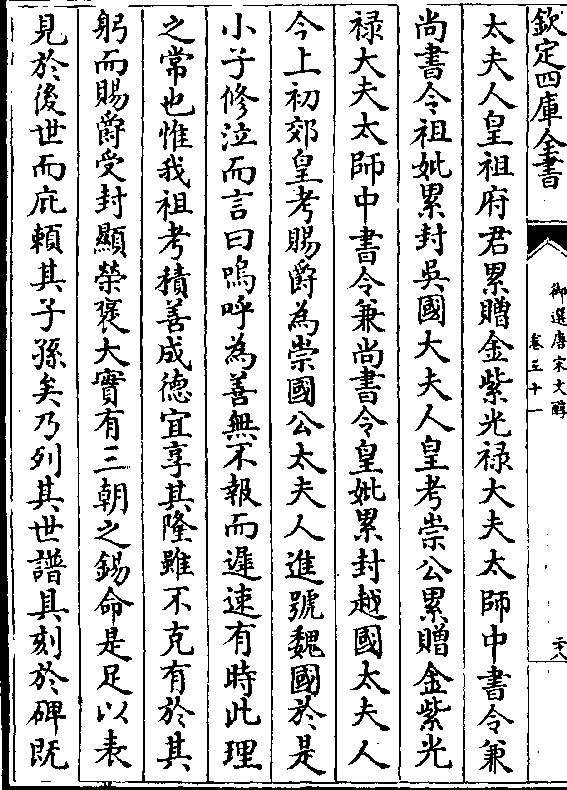 欽定四庫全書
御選唐宋文醇
卷三十一
二十八
太夫人皇祖府君累贈金紫光禄大夫太師中書令兼
尚書令祖妣累封吳國大夫人皇考崇公累贈金紫光
禄大夫太師中書令兼尚書令皇妣累封越國太夫人
今上初郊皇考賜爵為崇國公太夫人進號魏國於是
小子修泣而言曰嗚呼為善無不報而遲速有時此理
之常也惟我祖考積善成德宜享其隆雖不克有於其
躬而賜爵受封顯榮褒大實有三朝之錫命是足以表
見於後世而庇賴其子孫矣乃列其世譜具刻於碑既